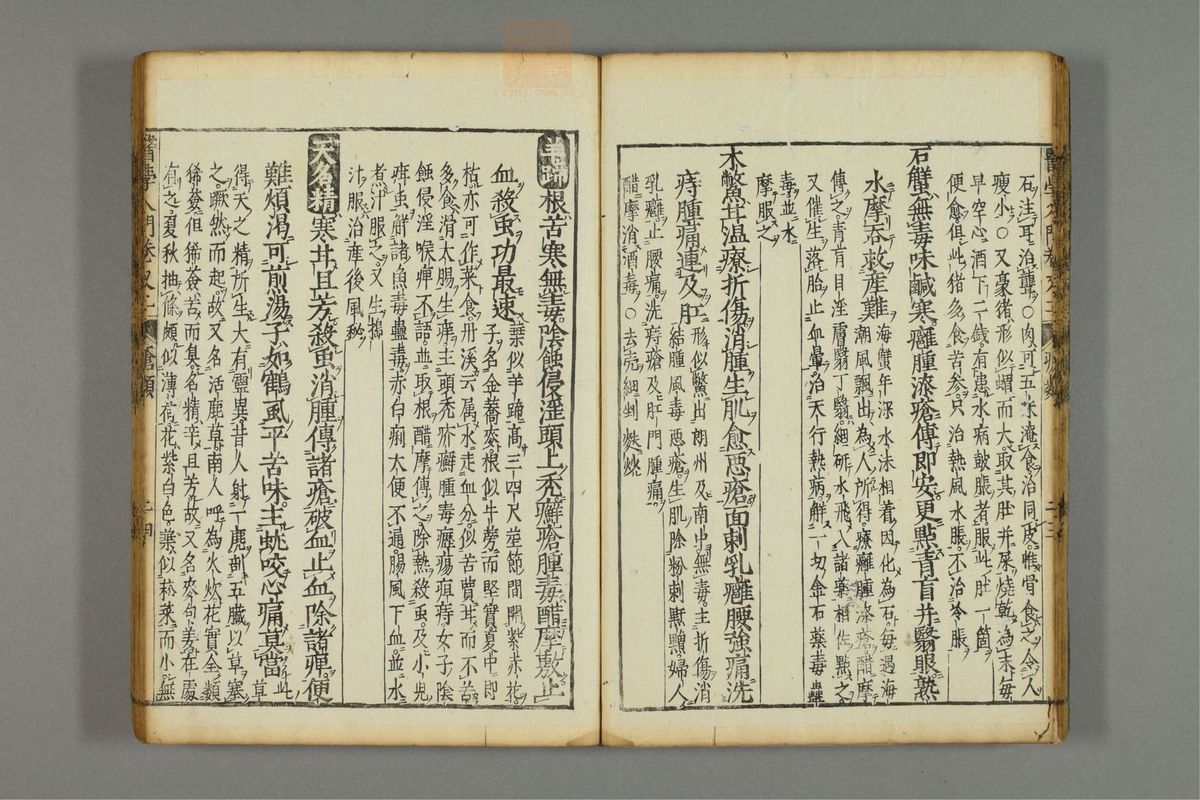 石主耳治聾○肉可五味淹食治同皮惟骨食之令人
瘦小○又豪猪形似蝟而大取其肚并屎燒乾為末每
早空心酒下二錢有患水病鼓脹者服此肚一箇
便愈但此猪多食苦參只治熱風水脹不治冷脹
石蟹無毒味鹹寒癰腫漆瘡傳即安更點青盲并翳眼熟
水摩吞救產難
海蟹年深水沫相着因化為石每遇海
潮風飄出為人所得療癰腫漆瘡醋摩
傳之青盲目淫膚翳丁翳細研水飛入諸藥相佐點之
又催生落胎止血暈治天行熱病解一切金石藥毒蠱
毒並水
摩服之
木鱉甘温療折傷消腫生肌愈惡瘡面刺乳癰腰強痛洗
痔腫痛連及肛
形似鱉出朗州及南中無毒主折傷消
結腫風毒惡瘡生肌除粉刺䵟䵳婦人
乳癰止腰痛洗痔瘡及肛門腫痛
醋摩消酒毒○去壳細剉麩炒
羊蹄根苦寒無毒陰蝕侵淫頭上禿癬瘡腫毒醋摩敷止
血殺虫功最速
葉似羊蹄高三四尺莖節間開紫赤花
子名金蕎麥根似牛蒡而堅實夏中即
枯亦可作菜食丹溪云属水走血分似苦蕒甘而不苦
多食滑大腸生痔主頭禿疥癬腫毒癧瘍疽痔女子陰
蝕侵淫喉痺不語並取根醋摩傳之除熱殺虫及小兒
疳虫解諸魚毒蠱毒赤白痢大便不通腸風下血並水
煮汁服之又生搗
汁服治產後風秘
天名精寒甘且芳殺虫消腫傳諸瘡破血止血除諸痺便
難煩渴可煎湯子如鶴虱平苦味主蚘咬心痛莫當
此草
得天之精所生大有靈異昔人射一鹿剖五臟以草塞
之蹶然而起故又名活鹿草南人呼為火炊花實全類
豨薟但豨薟苦而臭名精辛且芳故又名麥句姜在處
有之夏秋抽條頗似薄荷花紫白色葉似菘菜而小無
醫學入門卷
瘡類
二十四